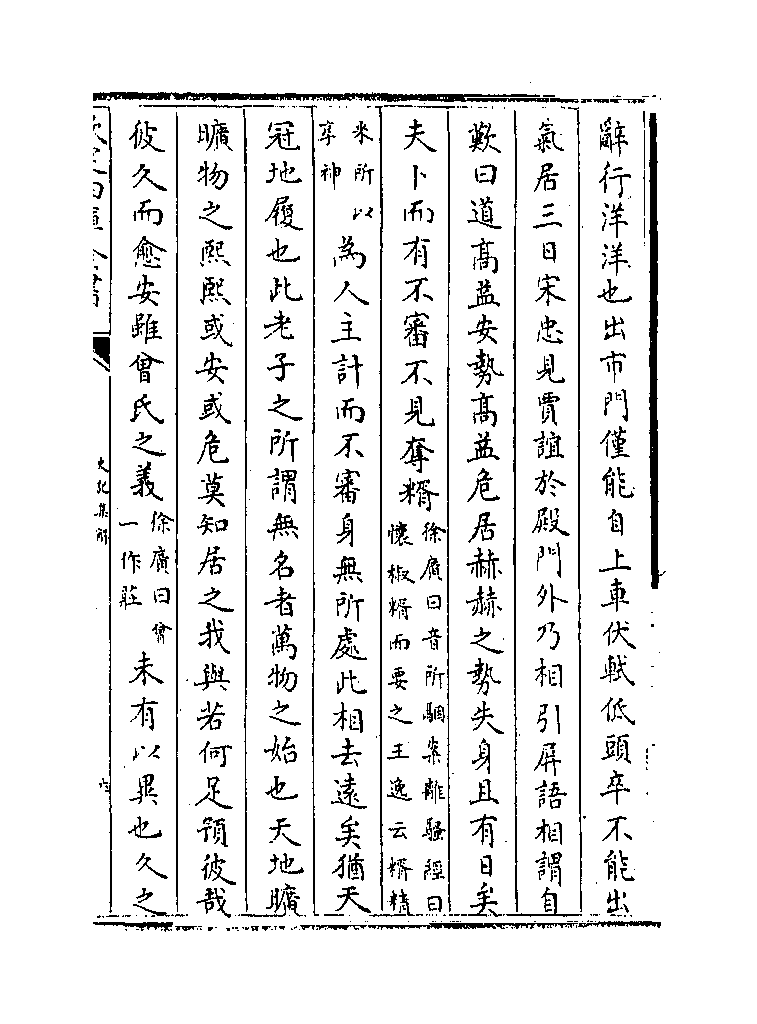 辭行洋洋也出市門僅能自上車伏軾低頭卒不能出
氣居三日宋忠見賈誼於殿門外乃相引屏語相謂自
歎曰道髙益安勢髙益危居赫赫之勢失身且有日矣
夫卜而有不審不見奪糈徐廣曰音所駰案離騷經曰懷椒糈而要之王逸云糈精
米所以享神為人主計而不審身無所處此相去遠矣猶天
冠地履也此老子之所謂無名者萬物之始也天地曠
曠物之熙熙或安或危莫知居之我與若何足預彼哉
彼久而愈安雖曾氏之義徐廣曰曾一作莊未有以異也久之
史記集解